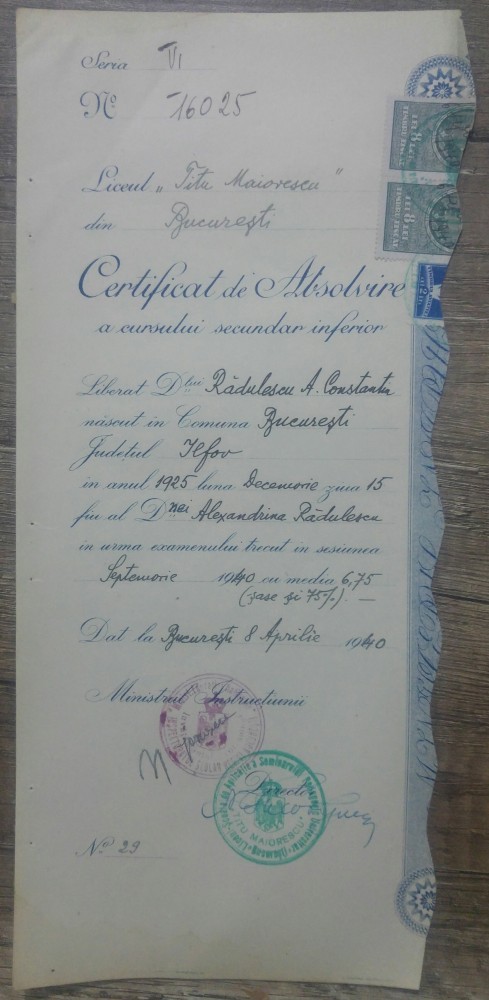 Seria VI
№ 16025
Liceul „Titu Maiorescu”
din București
Certificat de Absolvire
a cursului secundar inferior
Liberat Dlui Rădulescu A. Constantin
născut in Comuna București
Județul Ilfov
in anul 1925 luna Decemvrie ziua 15
fiu al Dnei Alexandrina Rădulescu
in urma examenului trecut in sesiunea
Septemvrie 1940 cu media 6,75
(șase și 75%). —
Dat la București 8 Aprilie 1940
Ministrul Instrucțiunii
Director
TITU MAIORESCU
№ 29
8 LEI
TIMBRU FISCAL
8 LEI
TIMBRU FISCAL